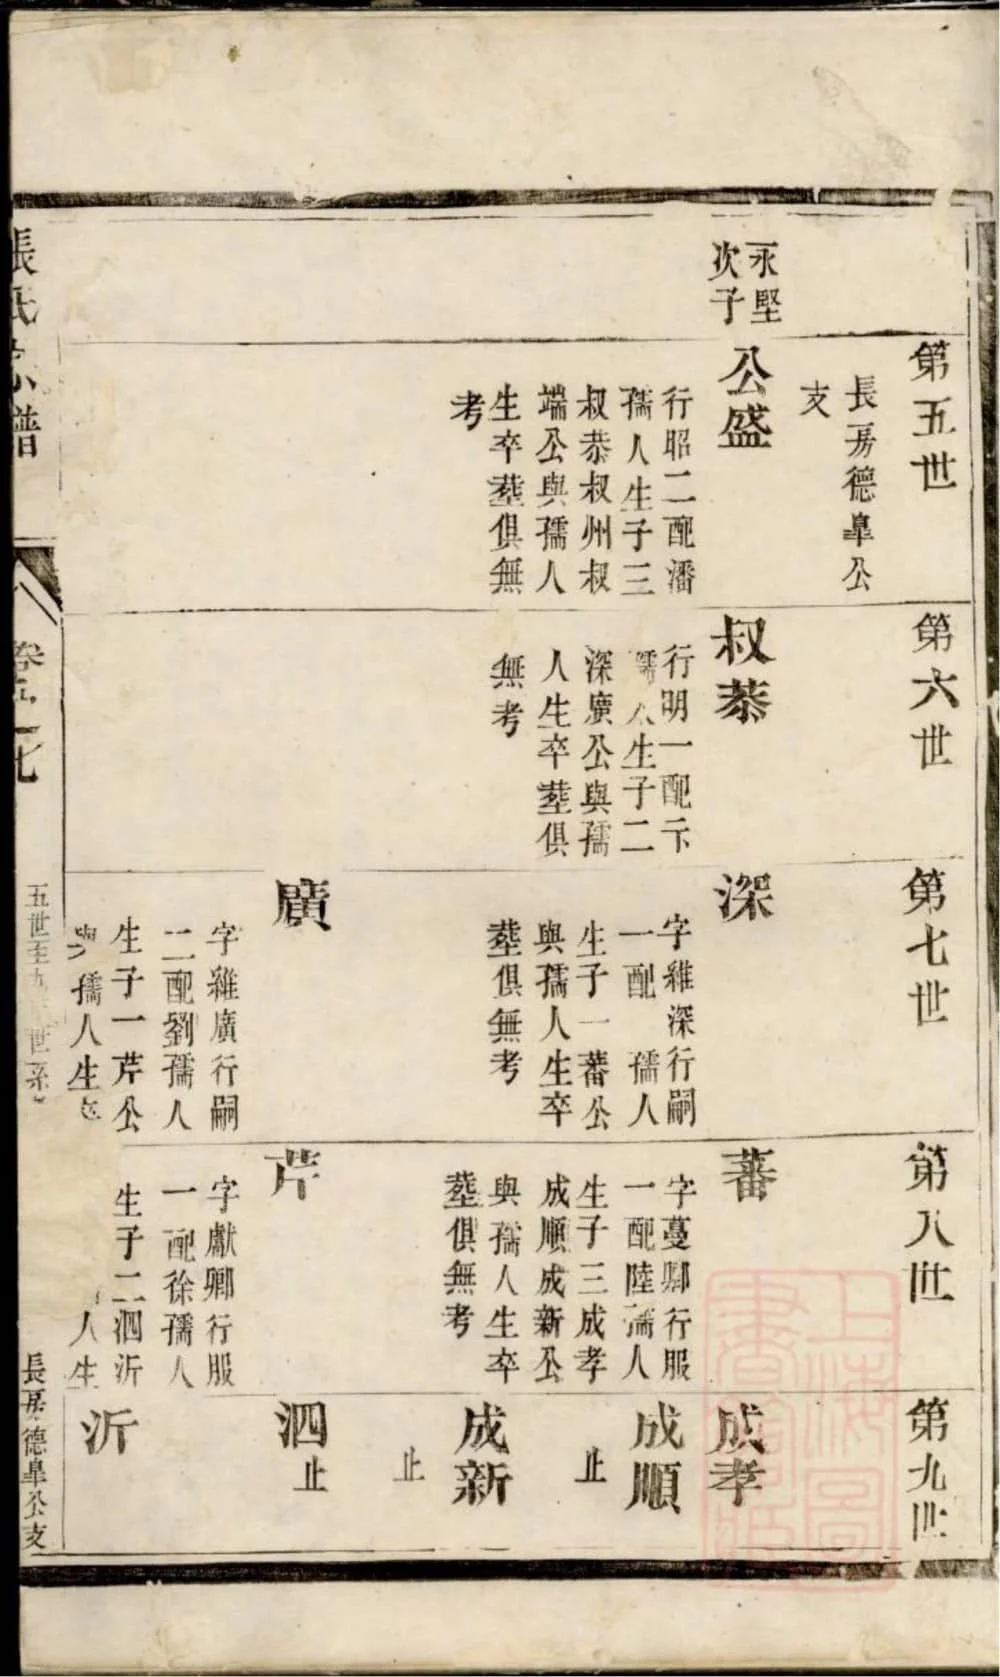 第五世
長房德臯公
支
永堅
次子
公盛
行昭二配潘
孺人生子三
叔恭叔州叔
端公與孺人
生卒塟俱無
考
第六世
叔恭
行明一配卞
孺人生子二
深廣公與孺
人生卒塟俱
無考
第七世
深
字維深行嗣
一配 孺人
生子一蕃公
與孺人生卒
塟俱無考
廣
字維廣行嗣
二配劉孺人
生子一芹公
與孺人生卒
第八世
蕃
字蔓卿行服
一配陸孺人
生子三成孝
成順成新公
與孺人生卒
塟俱無考
芹
字獻卿行服
一配徐孺人
生子二泗沂
人生
第九世
成孝
成順
止
成新
止
泗
止
沂
張氏宗譜
卷五 七
五世至九世系
長房德臯公支
上海圖書館藏